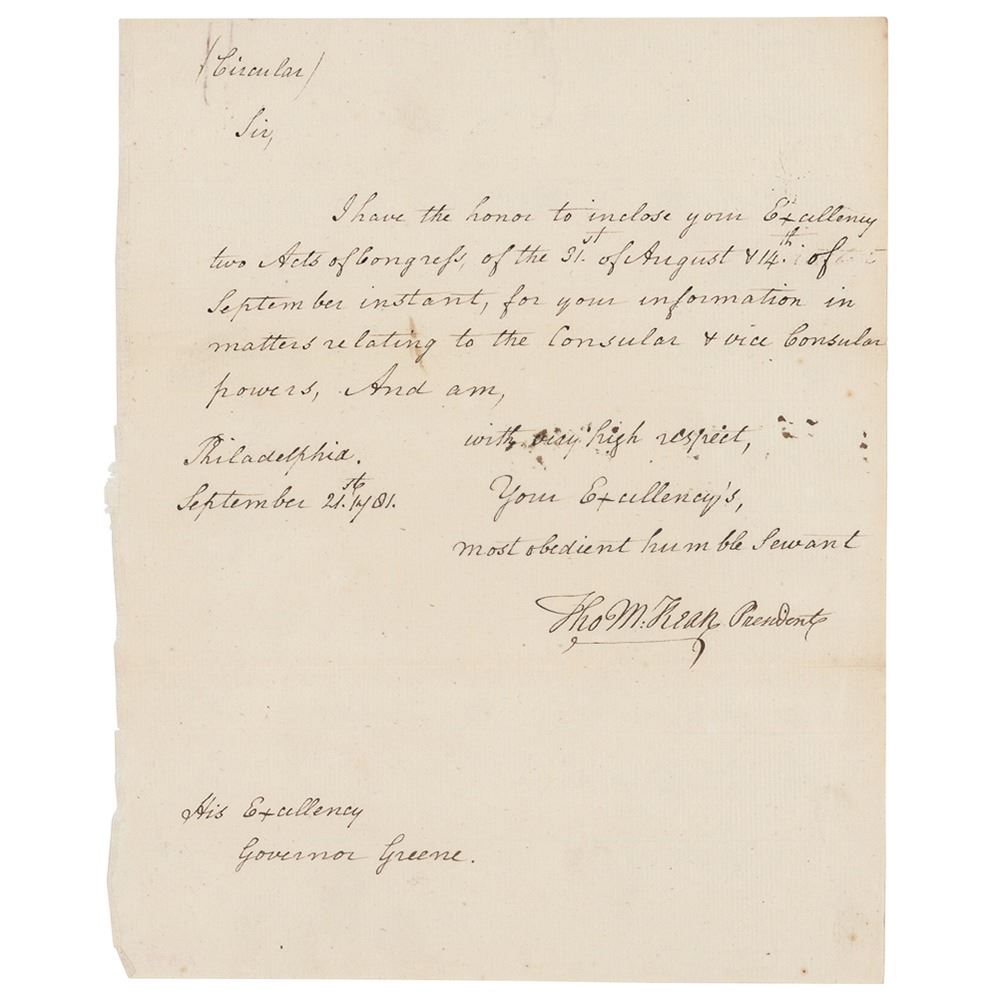 (Circular)
Sir,
I have the honor to inclose your Excellency
two Acts of Congress, of the 31.st of August & 14.th of
September instant, for your information in
matters relating to the Consular & vice Consular
powers, And am,
with very high respect,
Philadelphia.
September 21.st 1781.
Your Excellency's,
most obedient humble Servant
Tho M:Kean President
His Excellency
Governor Greene.